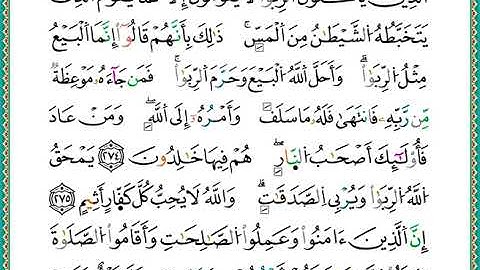 الَّذِينَ يَأْكُلُونَ الرِّبَوٰا۟ لَا يَقُومُونَ إِلَّا كَمَا يَقُومُ الَّذِي
يَتَخَبَّطُهُ الشَّيْطَٰنُ مِنَ الْمَسِّۚ ذَٰلِكَ بِأَنَّهُمْ قَالُوٓا۟ إِنَّمَا الْبَيْعُ
مِثْلُ الرِّبَوٰا۟ۗ وَأَحَلَّ اللَّهُ الْبَيْعَ وَحَرَّمَ الرِّبَوٰا۟ۚ فَمَن جَآءَهُۥ مَوْعِظَةٌ
مِّن رَّبِّهِۦ فَانتَهَىٰ فَلَهُۥ مَا سَلَفَۖ وَأَمْرُهُۥٓ إِلَى اللَّهِۖ وَمَنْ عَادَ
فَأُو۟لَٰٓئِكَ أَصْحَٰبُ النَّارِۖ هُمْ فِيهَا خَٰلِدُونَ ﴿٢٧٤﴾ يَمْحَقُ
اللَّهُ الرِّبَوٰا۟ وَيُرْبِي الصَّدَقَٰتِۗ وَاللَّهُ لَا يُحِبُّ كُلَّ كَفَّارٍ أَثِيمٍ ﴿٢٧٥﴾
إِنَّ الَّذِينَ ءَامَنُوا۟ وَعَمِلُوا۟ الصَّٰلِحَٰتِ وَأَقَامُوا۟ الصَّلَوٰةَ